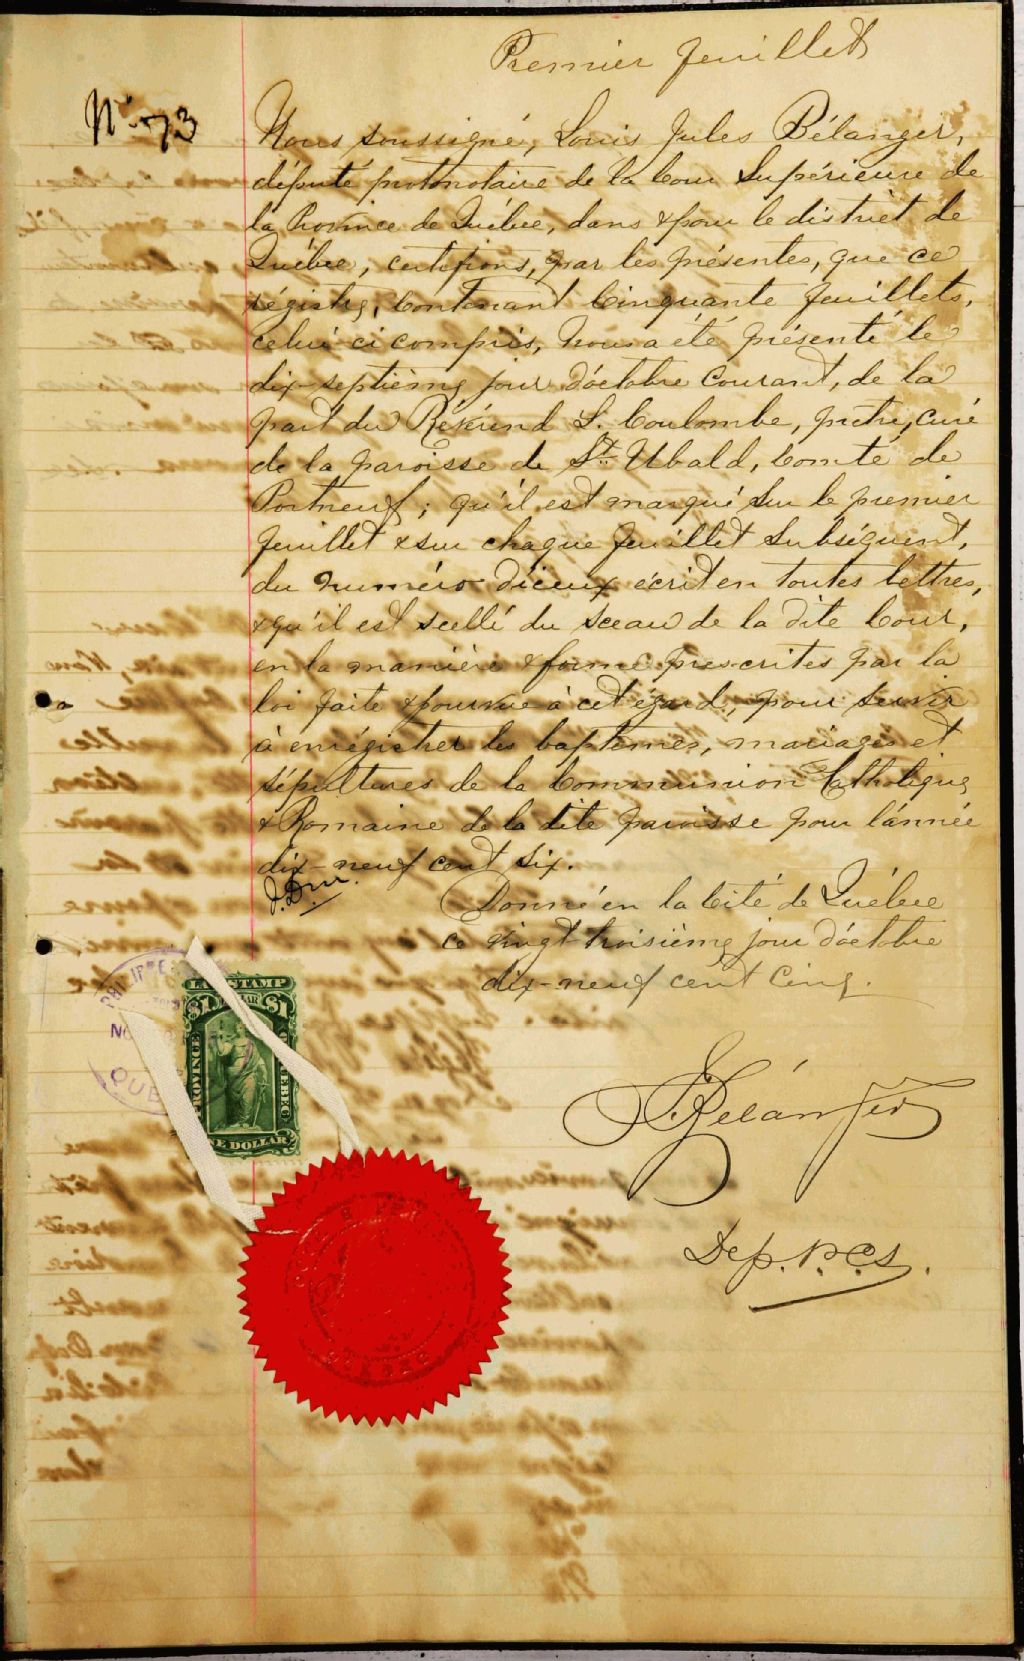 Premier feuillet
No 73
Nous soussigné, Louis Jules Bélanger,
député protonotaire de la Cour Supérieure de
la Province de Québec, dans & pour le district de
Québec, certifions, par les présentes, que ce
régistre, Contenant Cinquante feuillets,
celui-ci compris, nous a été présenté le
dix-septième jour d'octobre Courant, de la
part du Révérend L. Coulombe, prêtre, curé
de la paroisse de St Ubald, Comté de
Portneuf; qu'il est marqué sur le premier
feuillet & sur chaque feuillet subséquent,
du numéro d'iceux écrit en toutes lettres,
& qu'il est scellé du sceau de la dite Cour,
en la manière & forme prescrites par la
loi faite & pourvue à cet égard, pour servir
à enrégistrer les baptêmes, mariages et
sépultures de la Communion Catholique
& Romaine de la dite paroisse pour l'année
dix-neuf cent six.
Donné en la Cité de Québec
ce vingt-troisième jour d'octobre
dix-neuf cent Cinq.
LAW STAMP
$1 DOLLAR $1
PROVINCE
QUEBEC
ONE DOLLAR
PHILIPPE
QUEBEC
Bélanger
Dep. P.C.S.